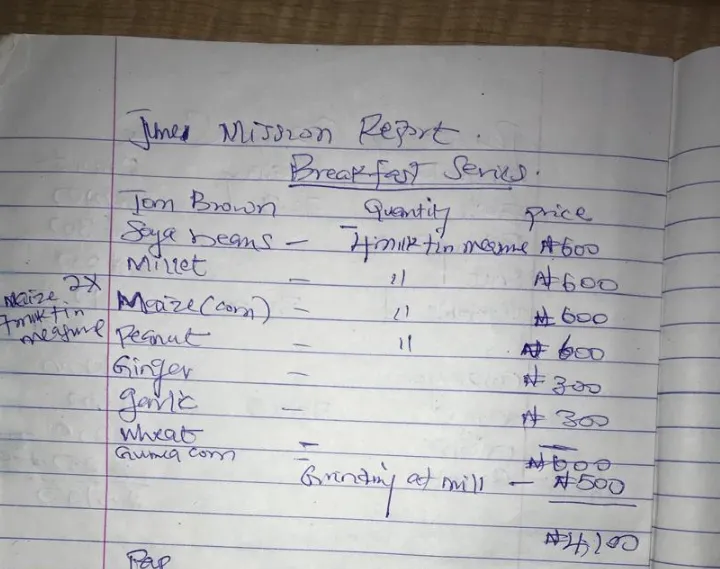 June Mission Report.
Breakfast Series.
Tom Brown Quantity price
Soya beans - 4 milk tin measure ₦600
Millet - " ₦600
Maize (corn) - " ₦600
Peanut - " ₦600
Ginger - ₦300
Garlic - ₦300
Wheat -
Guinea corn - ₦600
Grinding at mill - ₦500
₦4,100
Maize 2X
milk tin
measure
Pap